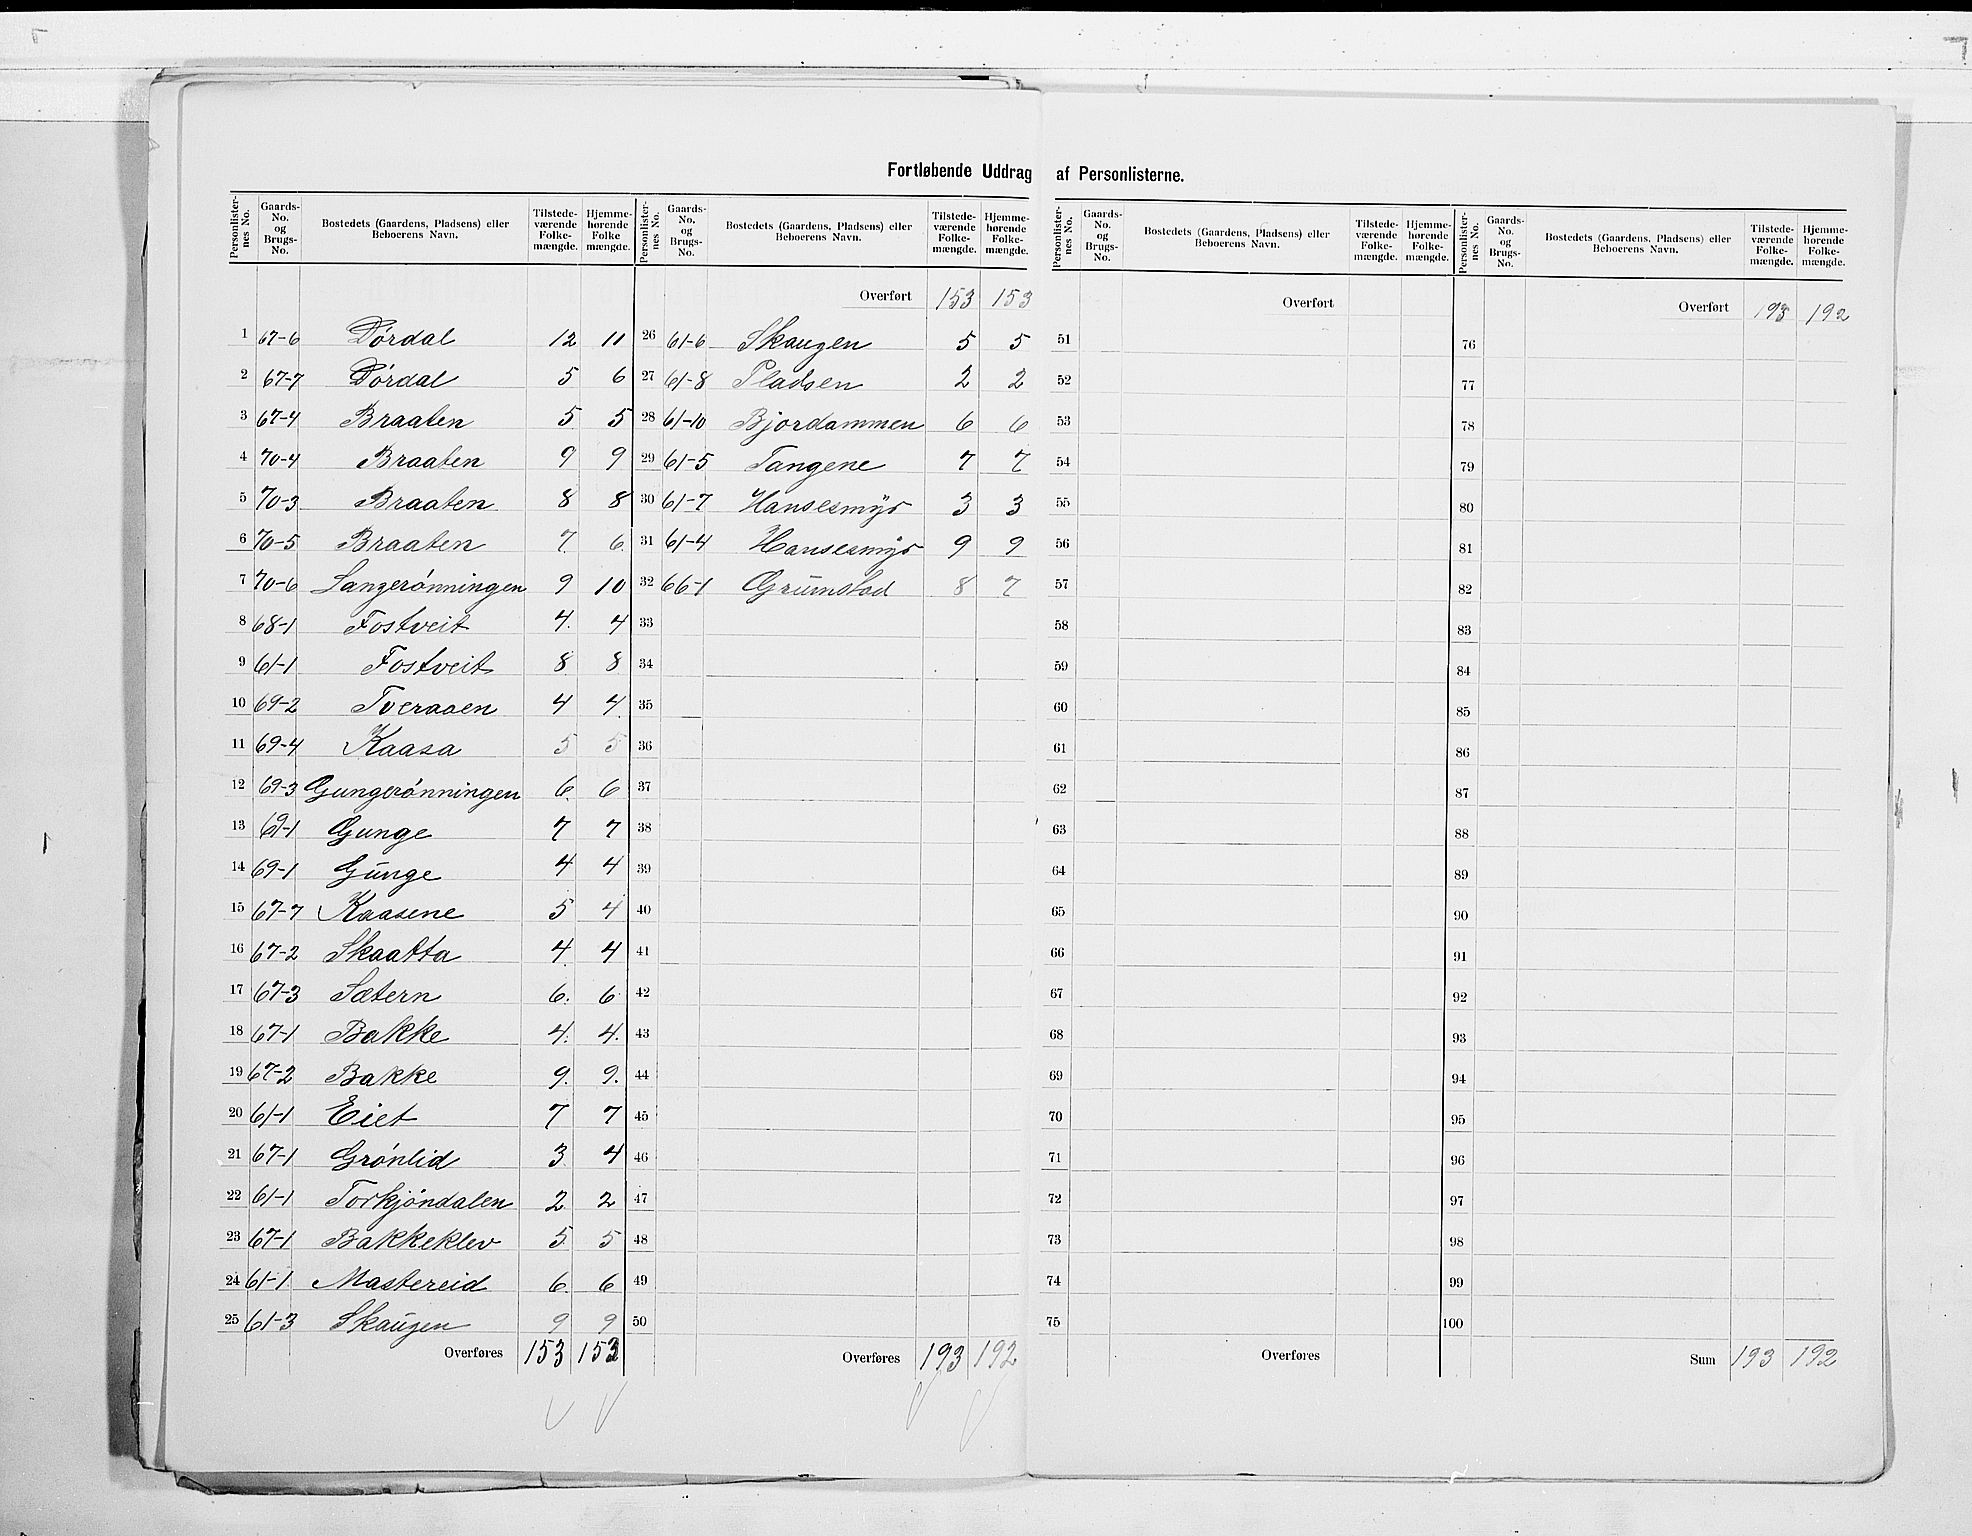 Fortløbende Uddrag af Personlisterne.
Personlister-nes No. Gaards-No. og Brugs-No. Bostedets (Gaardens, Pladsens) eller Beboerens Navn. Tilstede-værende Folke-mængde. Hjemme-hørende Folke mængde.
1 67-6 Dørdal 12 11
2 67-7 Dørdal 5 6
3 67-4 Braaten 5 5
4 70-4 Braaten 9 9
5 70-3 Braaten 8 8
6 70-5 Braaten 7 6
7 70-6 Langerønningen 9 10
8 68-1 Fostveit 4 4
9 61-1 Fostveit 8 8
10 69-2 Tveraaen 4 4
11 69-4 Kaasa 5 5
12 69-3 Gungerønningen 6 6
13 69-1 Gunge 7 7
14 69-1 Gunge 4 4
15 67-7 Kaasene 5 4
16 67-2 Skaatta 4 4
17 67-3 Sætern 6 6
18 67-1 Bakke 4 4
19 67-2 Bakke 9 9
20 61-1 Eiet 7 7
21 67-1 Grønlid 3 4
22 61-1 Torkjøndalen 2 2
23 67-1 Bakkeklev 5 5
24 61-1 Mastereid 6 6
25 61-3 Skaugen 9 9
Overføres 153 153
Personlister-nes No. Gaards-No. og Brugs-No. Bostedets (Gaardens, Pladsens) eller Beboerens Navn. Tilstede-værende Folke-mængde. Hjemme-hørende Folke-mængde.
Overført 153 153
26 61-6 Skaugen 5 5
27 61-8 Pladsen 2 2
28 61-10 Bjordammen 6 6
29 61-5 Tangene 7 7
30 61-7 Hansesmyr 3 3
31 61-4 Hansesmyr 9 9
32 66-1 Grumstad 8 7
33
34
35
36
37
38
39
40
41
42
43
44
45
46
47
48
49
50
Overføres 193 192
Personlister-nes No. Gaards-No. og Brugs-No. Bostedets (Gaardens, Pladsens) eller Beboerens Navn. Tilstede-værende Folke-mængde. Hjemme-hørende Folke-mængde.
Overført
51
52
53
54
55
56
57
58
59
60
61
62
63
64
65
66
67
68
69
70
71
72
73
74
75
Overføres
Personlister-nes No. Gaards-No. og Brugs-No. Bostedets (Gaardens, Pladsens) eller Beboerens Navn. Tilstede-værende Folke-mængde. Hjemme-hørende Folke-mængde.
Overført 193 192
76
77
78
79
80
81
82
83
84
85
86
87
88
89
90
91
92
93
94
95
96
97
98
99
100
Sum 193 192